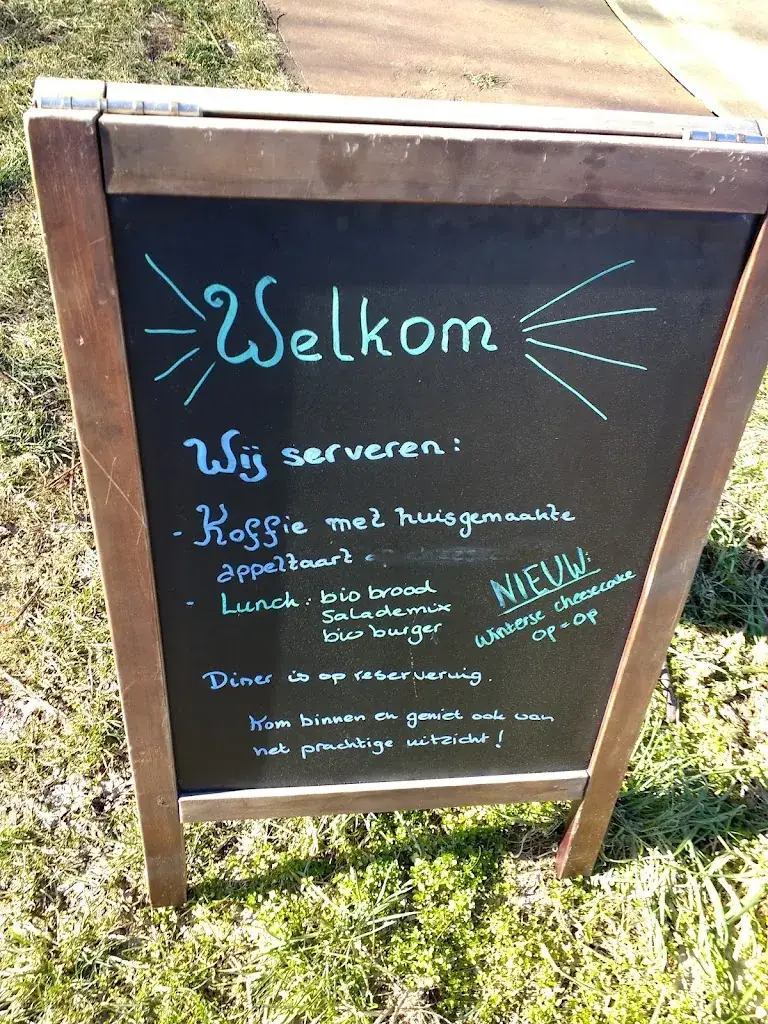 Welkom
Wij serveren:
- Koffie met huisgemaakte
appeltaart
- Lunch: bio brood
Salademix
bio burger
NIEUW:
Winterse cheesecake
op = op
Diner is op reservering.
Kom binnen en geniet ook van
het prachtige uitzicht!